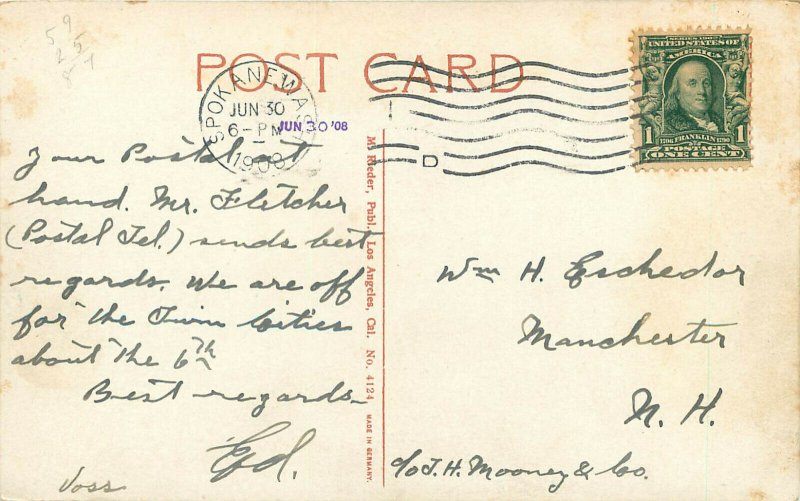 POST CARD
SPOKANE, WASH.
JUN 30
6-PM
1908
JUN 30 '08
D
SERIES 1902
UNITED STATES OF AMERICA
1 1706 FRANKLIN 1790 1
POSTAGE
ONE CENT
Your Postal at
hand. Mr. Fletcher
(Postal Tel.) sends best
regards. We are off
for the Twin Cities
about the 6th
Best regards.
Ed.
Voss
M. Rieder, Publ. Los Angeles, Cal. No. 4124 MADE IN GERMANY.
Wm H. Eschedor
Manchester
N. H.
c/o J. H. Mooney & Co.